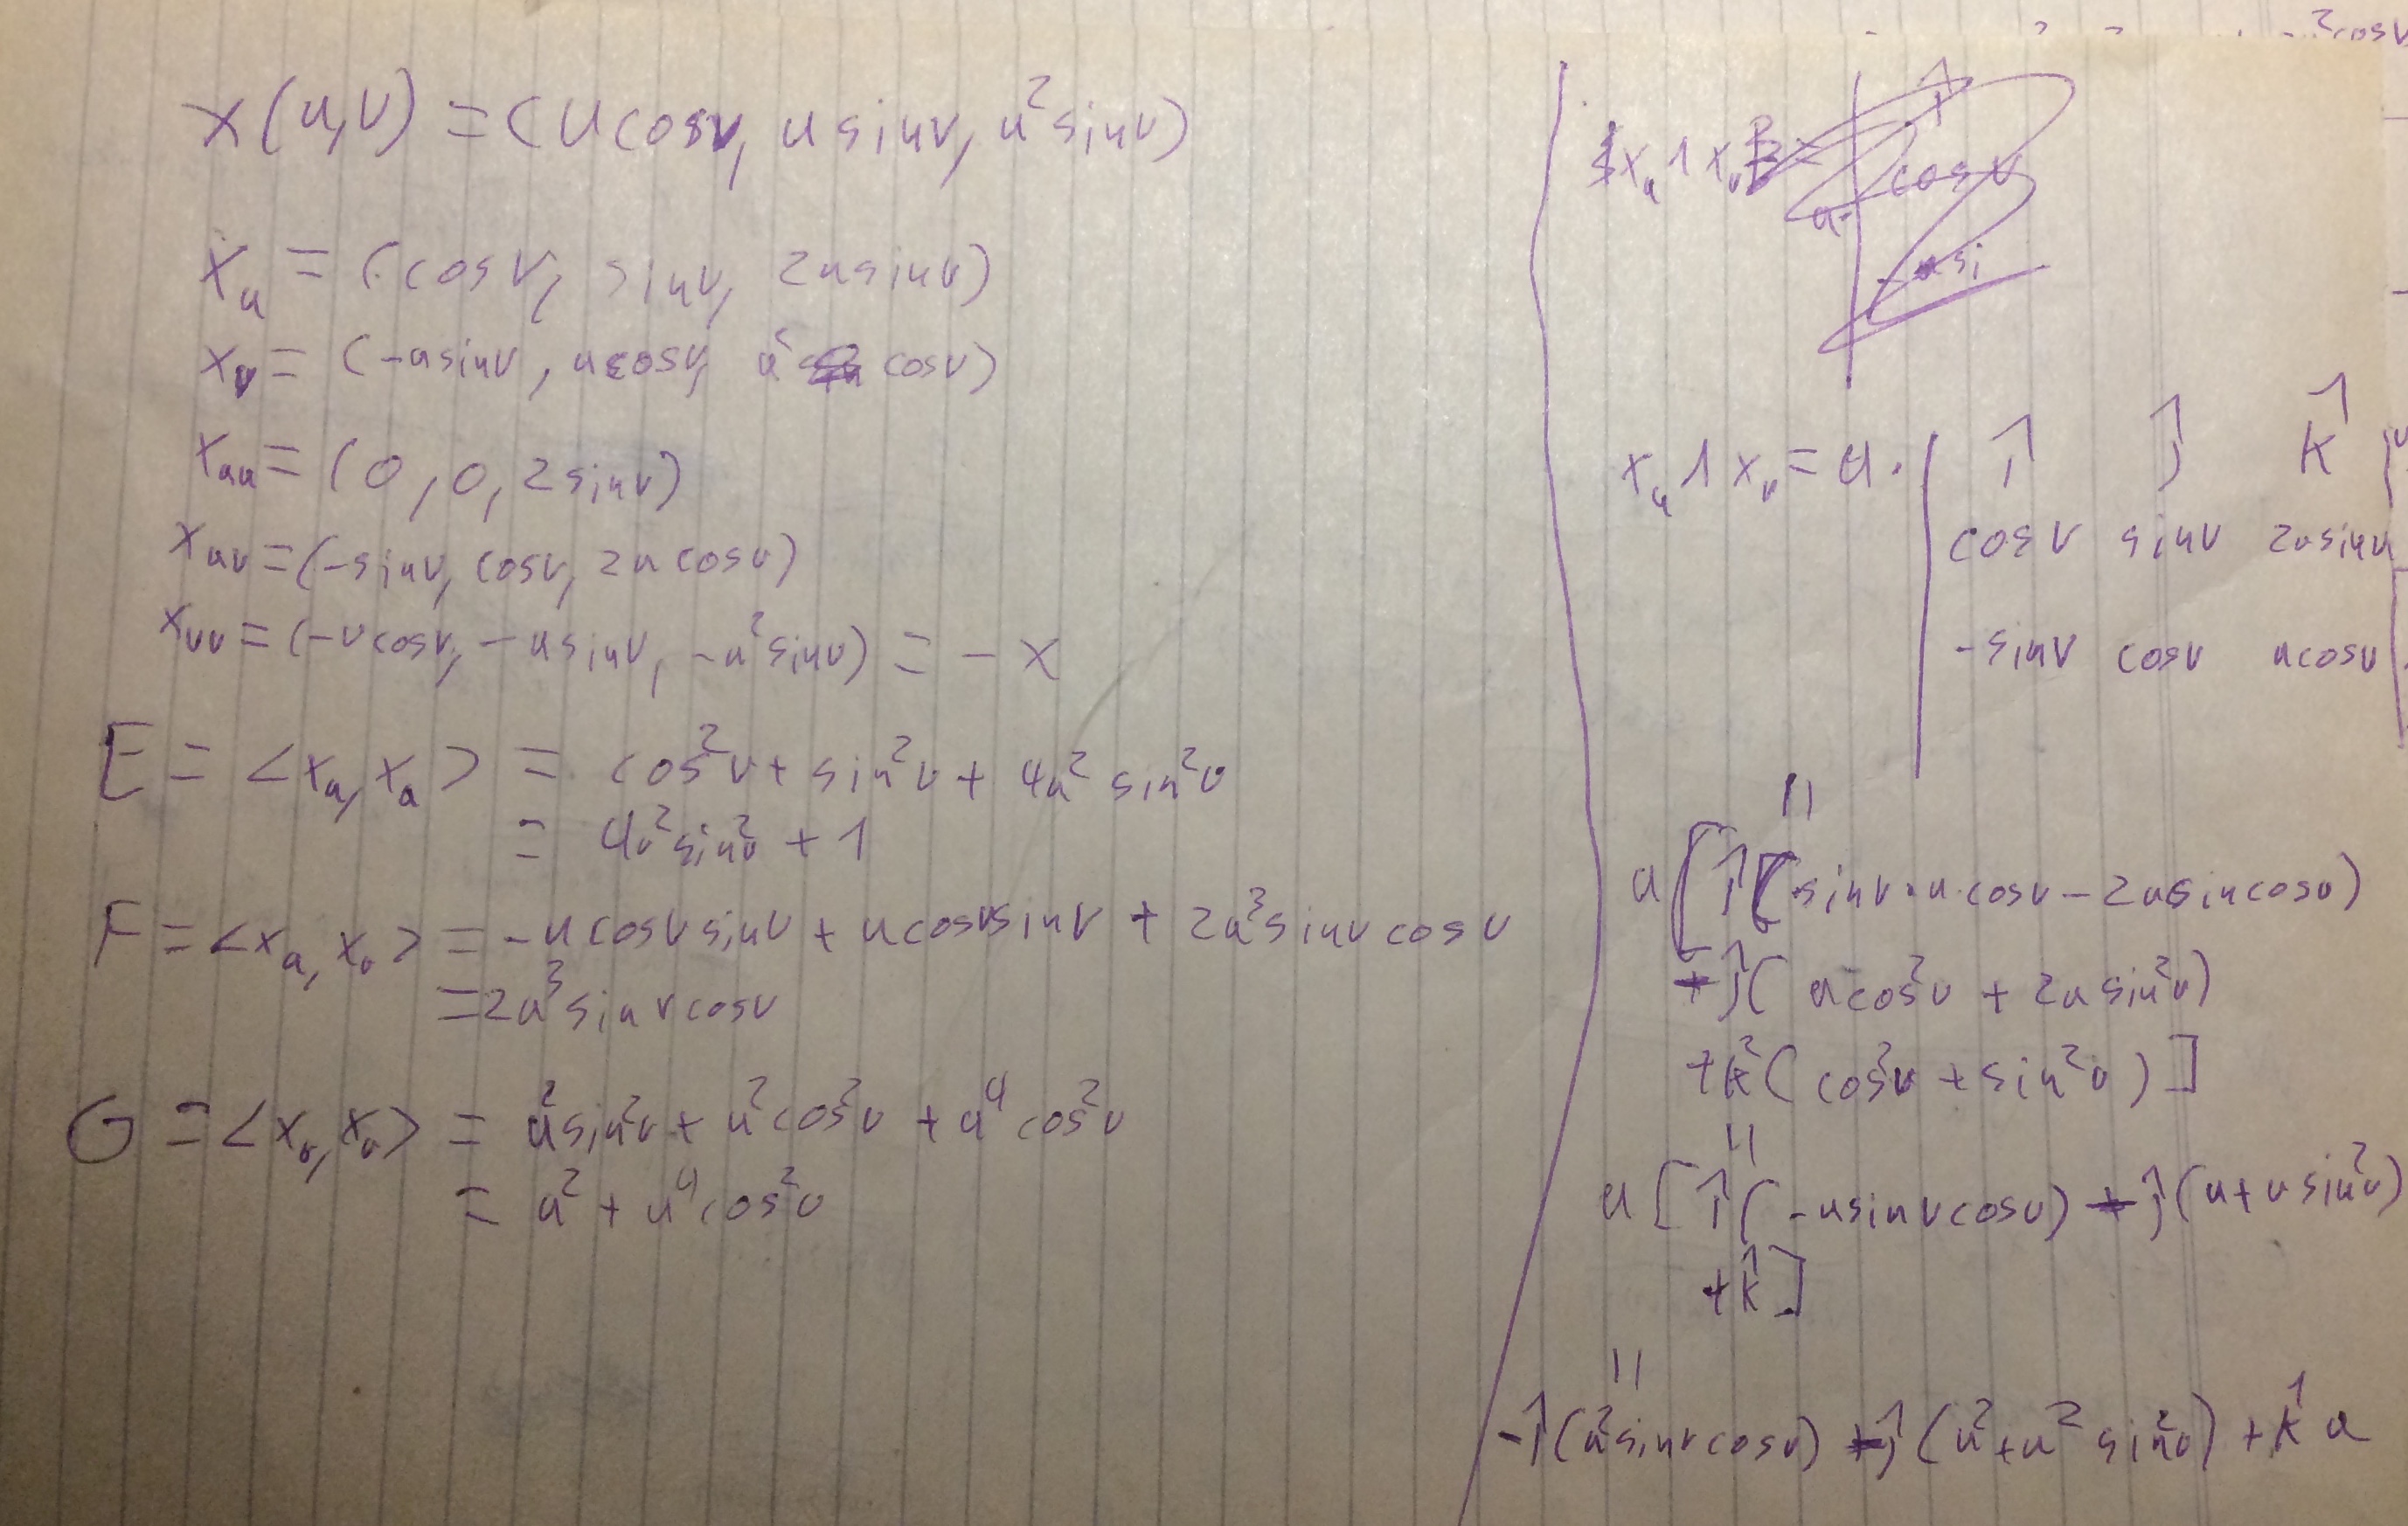 x(u,v) = (u cosv, u sinv, u² sinv)
x_u = (cosv, sinv, 2u sinv)
x_v = (-u sinv, u cosv, u² cosv)
x_uu = (0, 0, 2 sinv)
x_uv = (-sinv, cosv, 2u cosv)
x_vv = (-u cosv, -u sinv, -u² sinv) = -x
E = <x_u, x_u> = cos²v + sin²v + 4u² sin²v
= 4u² sin²v + 1
F = <x_u, x_v> = -u cosv sinv + u cosv sinv + 2u³ sinv cosv
= 2u³ sinv cosv
G = <x_v, x_v> = u² sin²v + u² cos²v + u⁴ cos²v
= u² + u⁴ cos²v
²cosv
x_u ∧ x_v =
cosv
x_u ∧ x_v = u · | î ĵ k̂ |
cosv sinv 2u sinv
-sinv cosv u cosv
||
u[î(sinv · u cosv - 2u sin cosv)
-ĵ(u cos²v + 2u sin²v)
+k̂(cos²v + sin²v)]
||
u[î(-u sinv cosv) - ĵ(u + u sin²v)
+k̂]
||
-î(u² sinv cosv) - ĵ(u² + u² sin²v) + k̂ u